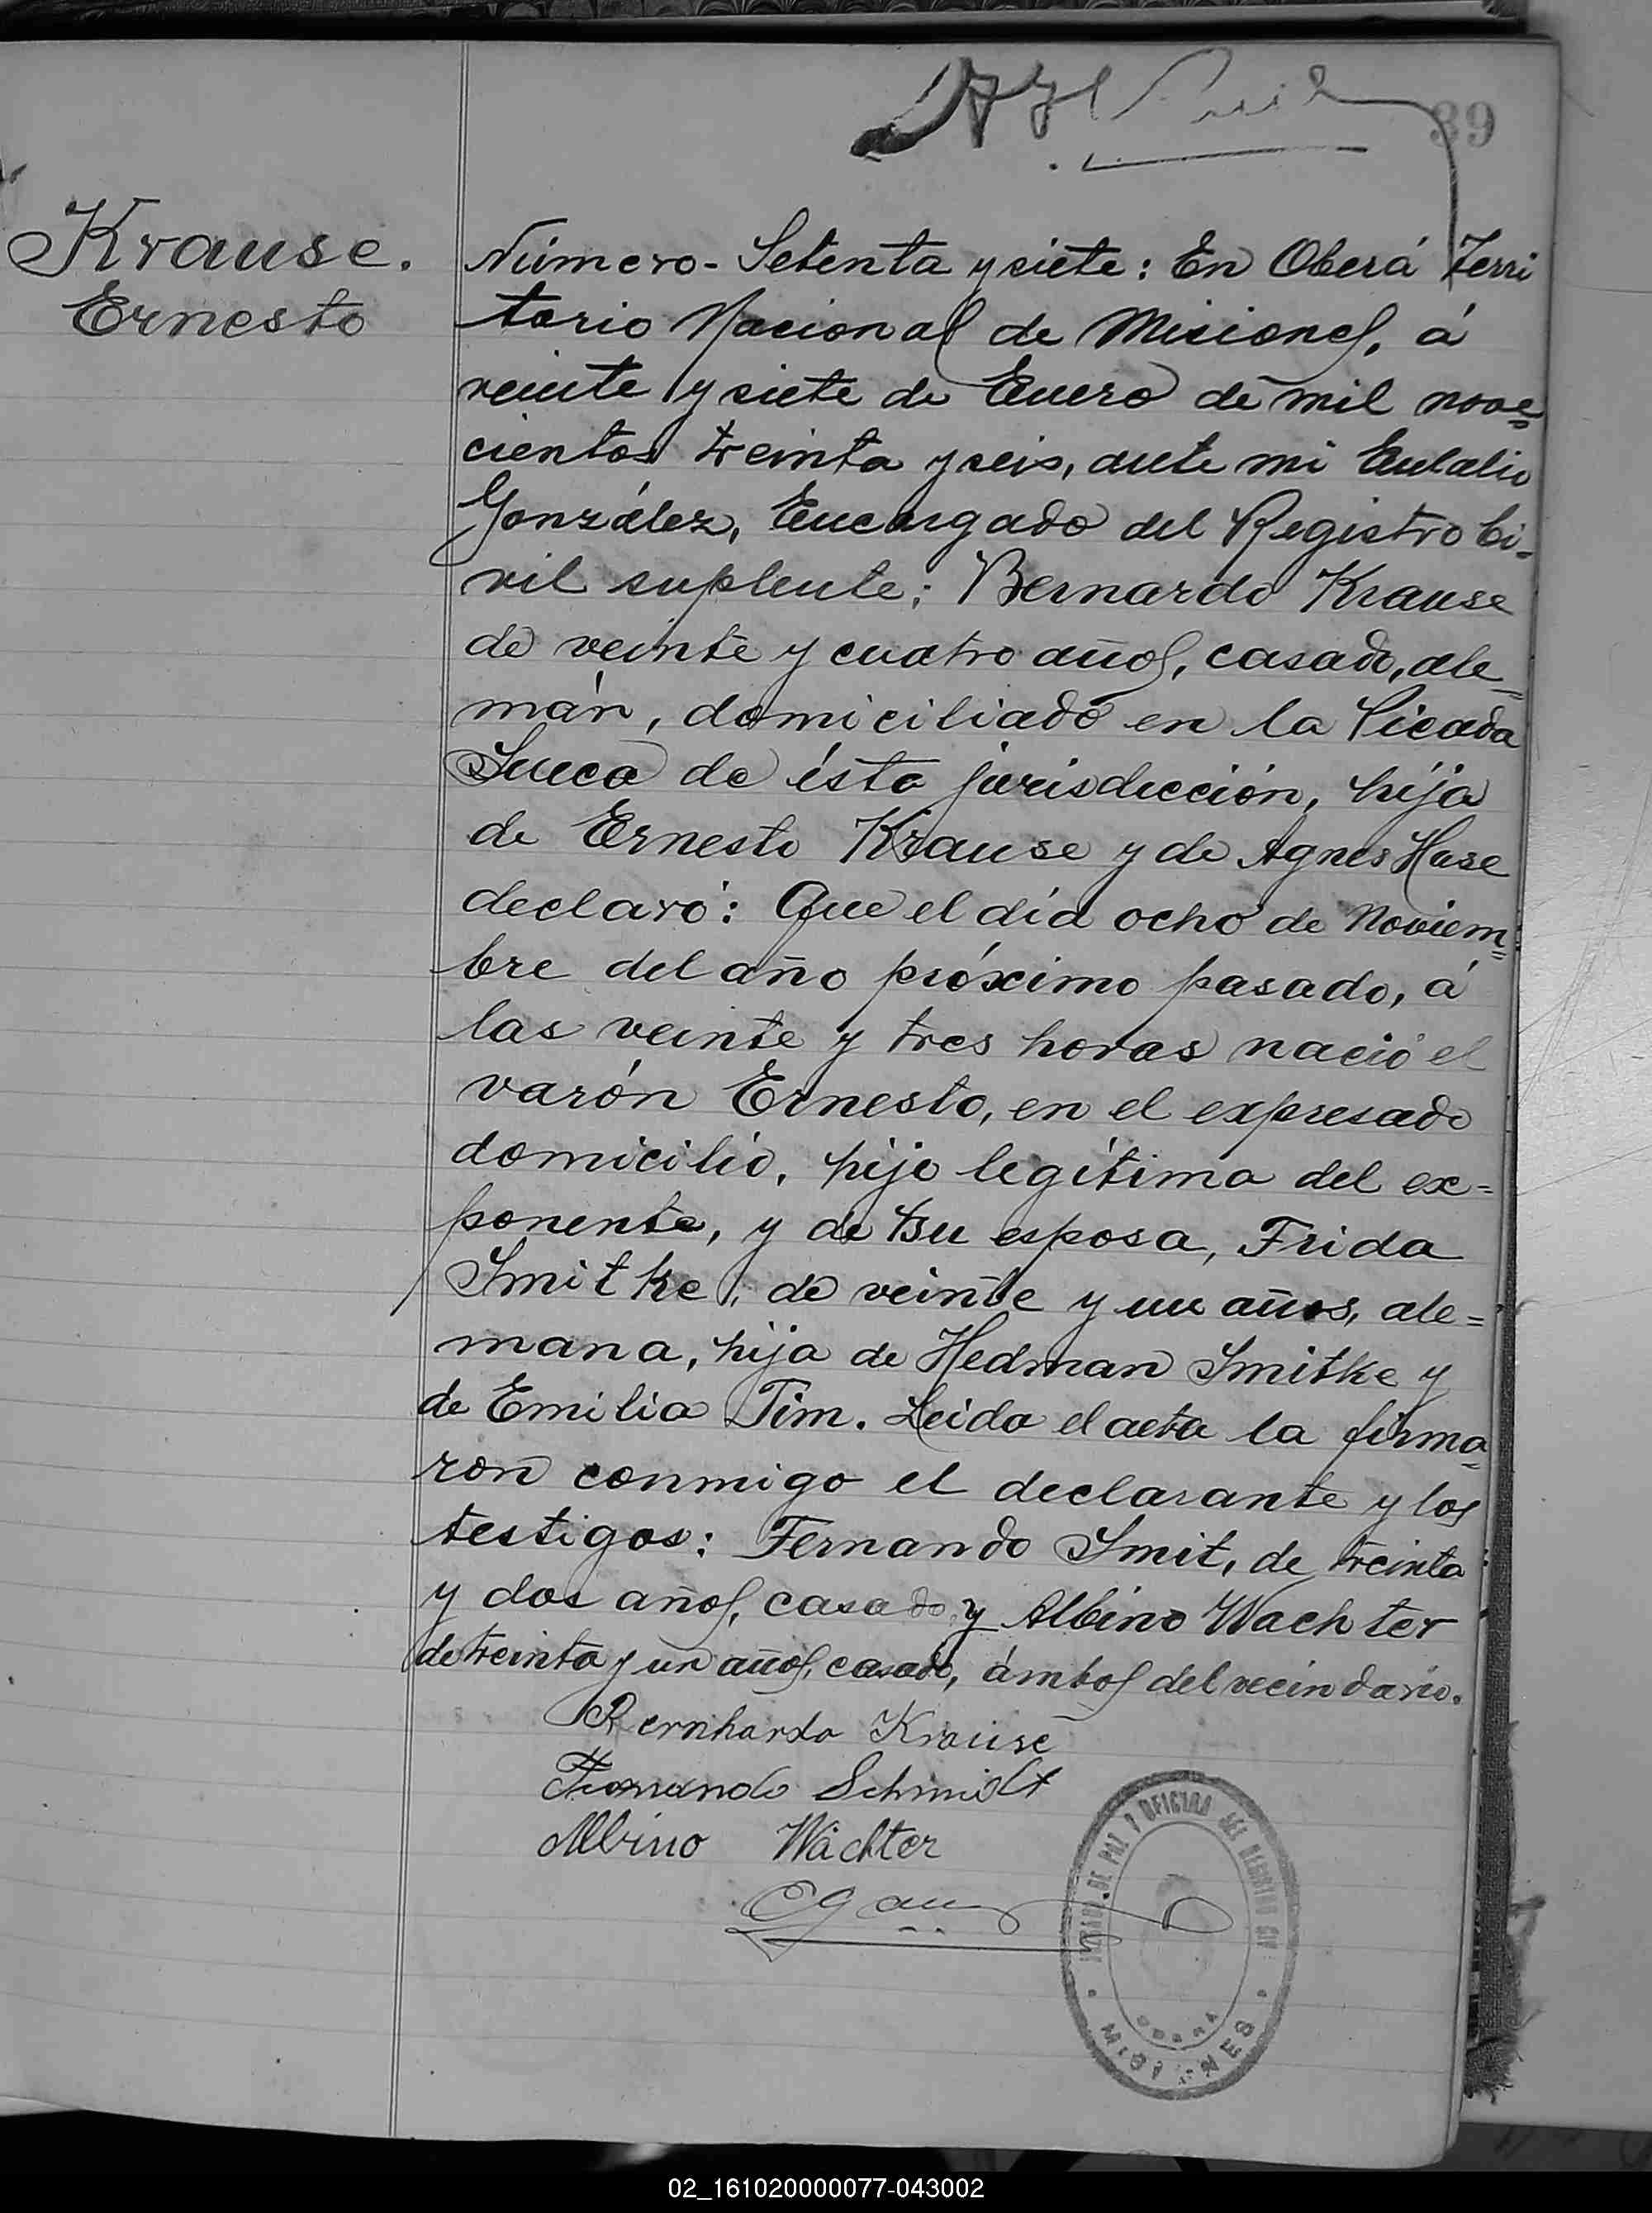 39
Krause.
Ernesto
Número - Setenta y siete: En Oberá Terri
torio Nacional de Misiones, á
veinte y siete de Enero de mil nove=
cientos treinta y seis, ante mi Eulalio
González, Encargado del Registro Ci-
vil suplente: Bernardo Krause
de veinte y cuatro años, casado, ale=
mán, domiciliado en la Picada
Sueca de ésta jurisdicción, hijo
de Ernesto Krause y de Agnes Hase
declaró: Que el día ocho de Noviem=
bre del año próximo pasado, á
las veinte y tres horas nació el
varón Ernesto, en el expresado
domicilio, hijo legítimo del ex=
ponente, y de su esposa, Frida
Smitke, de veinte y un años, ale=
mana, hija de Hedman Smitke y
de Emilia Tim. Leida el acta la firma=
ron conmigo el declarante y los
testigos: Fernando Smit, de treinta
y dos años, casado y Albino Wachter
de treinta y un años, casado, ámbos del vecindario.
Bernhardo Krause
Fernando Schmidt
Albino Wächter
JUZGADO DE PAZ Y OFICINA DEL REGISTRO CIVIL
OBERÁ
MISIONES
02_161020000077-043002